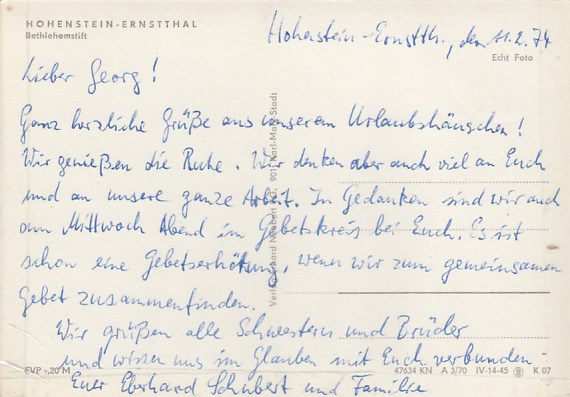 HOHENSTEIN-ERNSTTHAL
Bethlehemstift
Hohenstein-Ernstth., den 11.2.74
Echt Foto
Lieber Georg!
Ganz herzliche Grüße aus unserem Urlaubshäuschen!
Wir genießen die Ruhe. Wir denken aber auch viel an Euch
und an unsere ganze Arbeit. In Gedanken sind wir auch
am Mittwoch Abend im Gebetskreis bei Euch. Es ist
schon eine Gebetserhörung, wenn wir zum gemeinsamen
Gebet zusammenfinden.
Wir grüßen alle Schwestern und Brüder
und wissen uns im Glauben mit Euch verbunden
Euer Eberhard Schubert und Familie
EVP -,20 M
47634 KN A 3/70 IV-14-45 K 07
Verlag Neubert KG, 901 Karl-Marx-Stadt